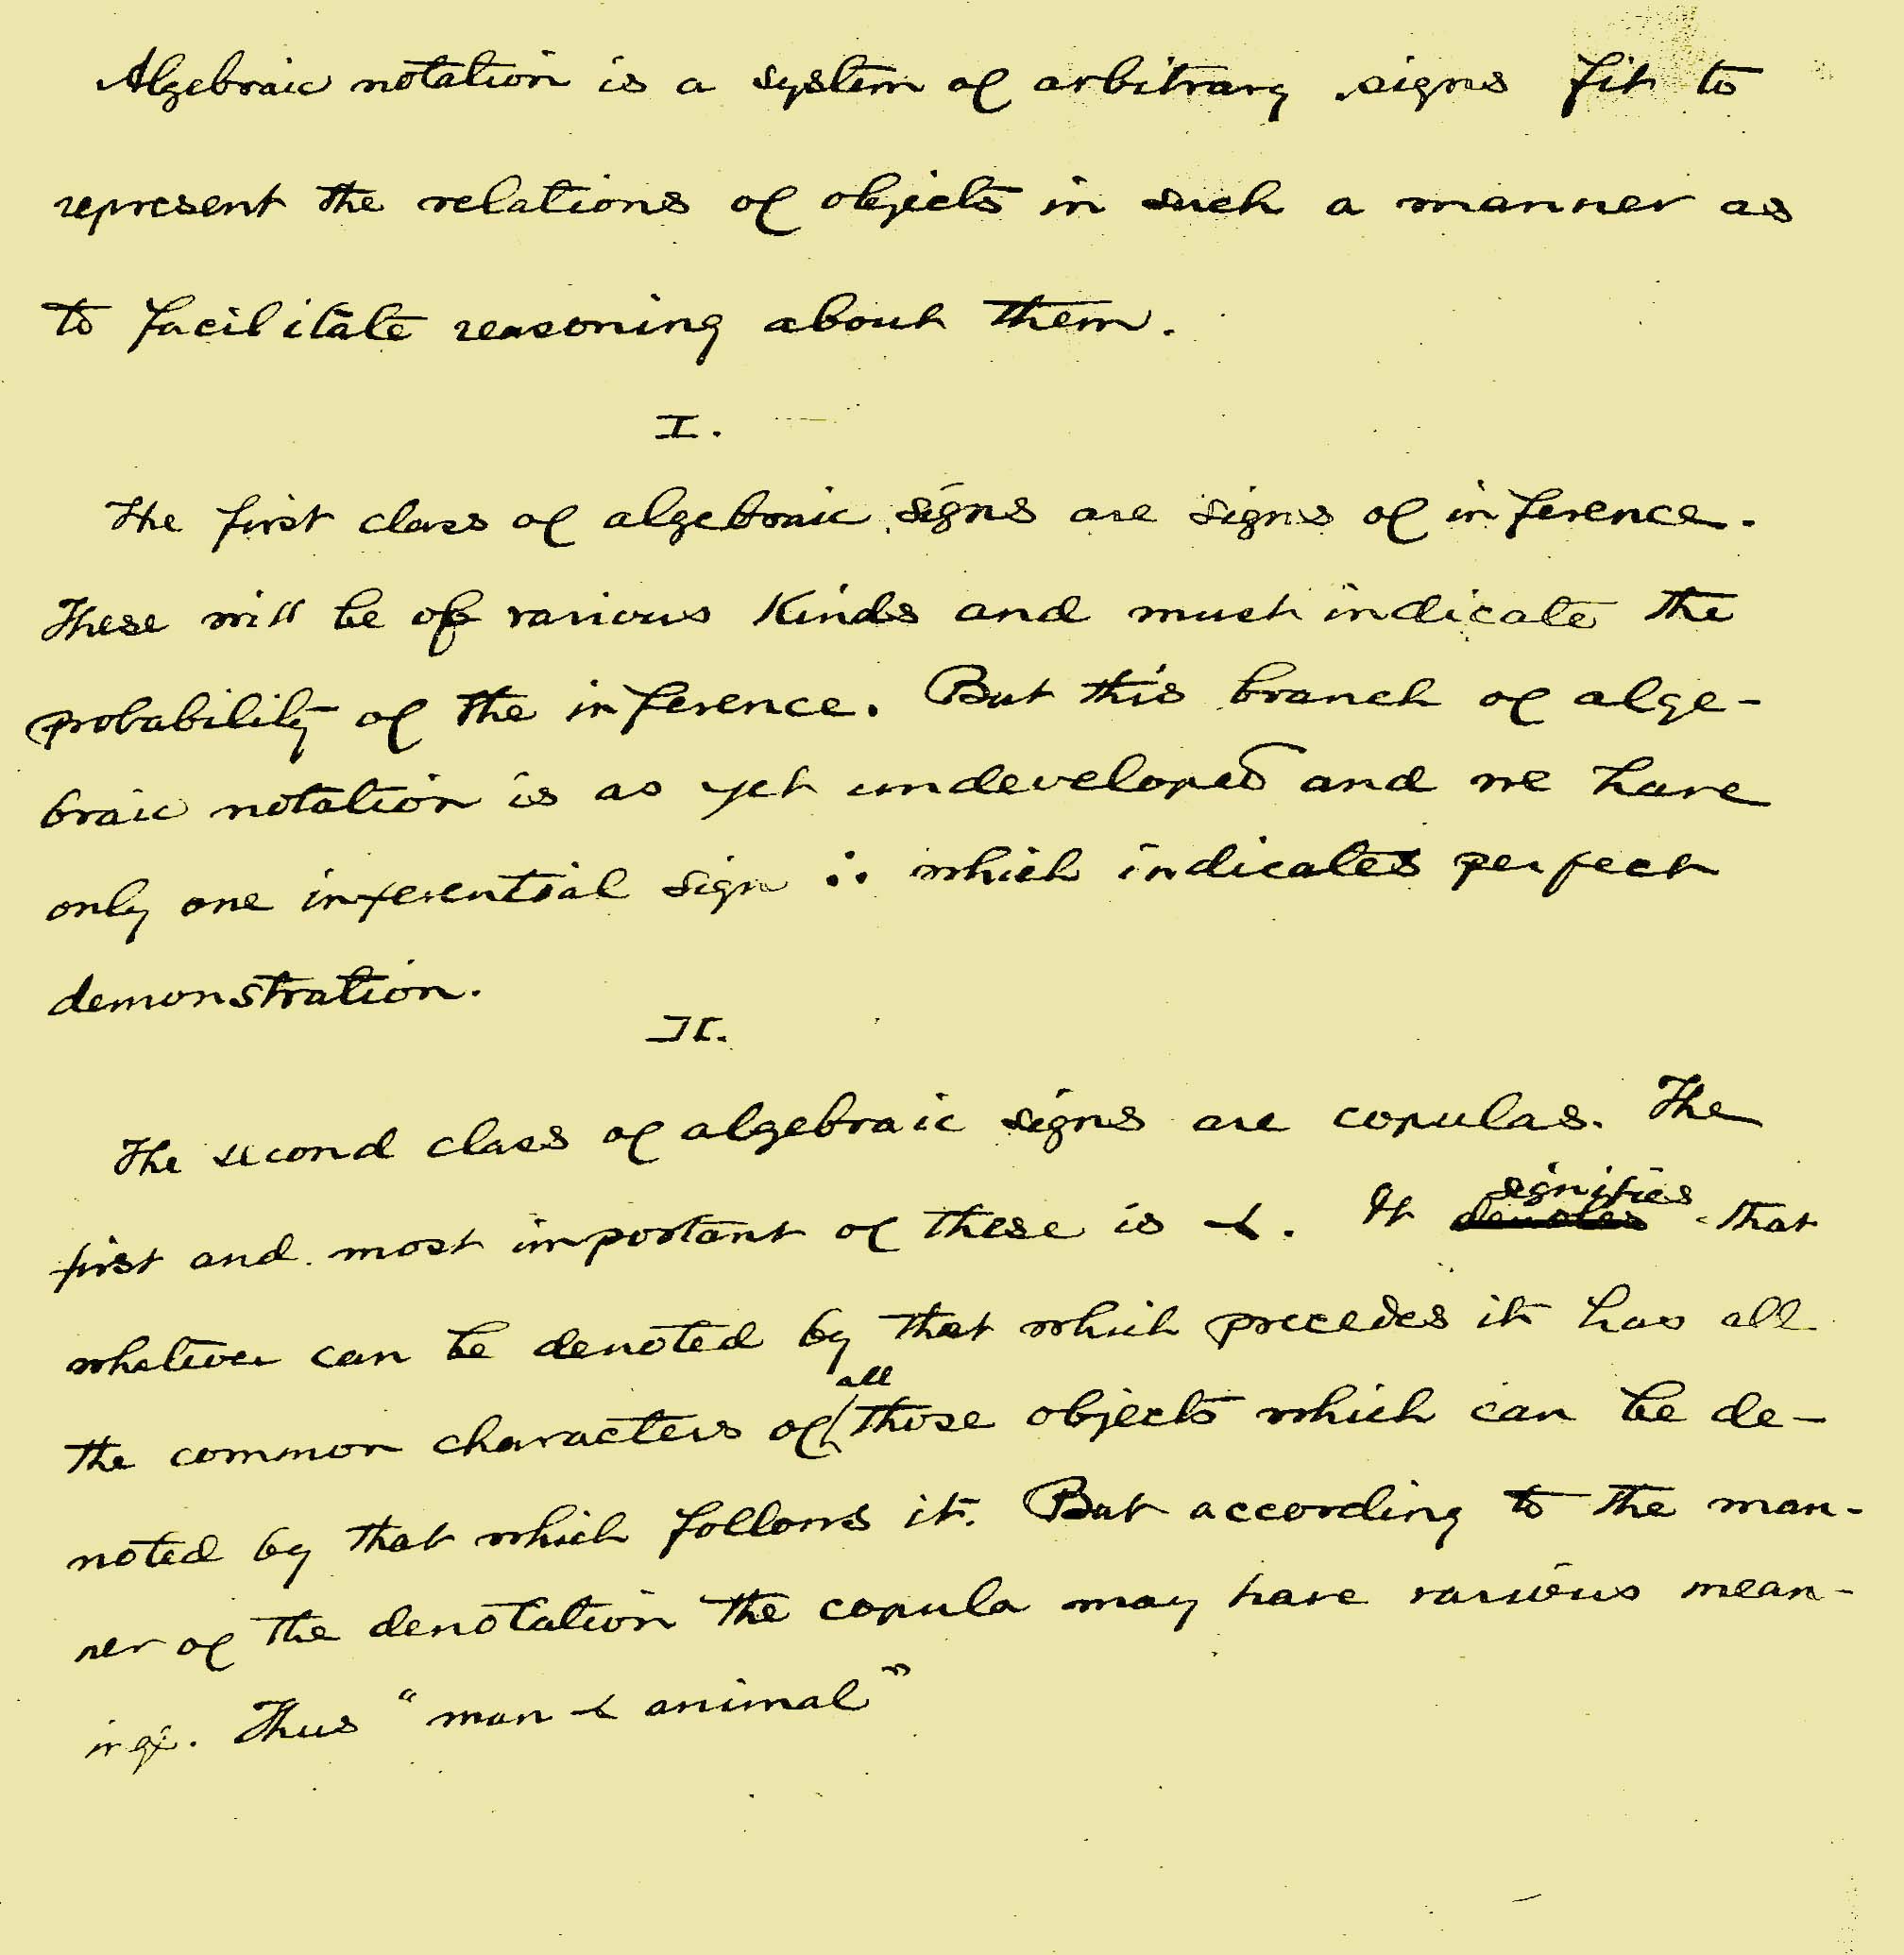 Algebraic notation is a system of arbitrary signs fit to
represent the relations of objects in such a manner as
to facilitate reasoning about them.
I.
The first class of algebraic signs are signs of inference.
These will be of various kinds and must indicate the
probability of the inference. But this branch of alge-
braic notation is as yet undeveloped and we have
only one inferential sign ∴ which indicates perfect
demonstration.
II.
The second class of algebraic signs are copulas. The
first and most important of these is ⤙. It denotes signifies that
whatever can be denoted by that which precedes it has all
the common characters of all those objects which can be de-
noted by that which follows it. But according to the man-
ner of the denotation the copula may have various mean-
ings. Thus "man ⤙ animal"